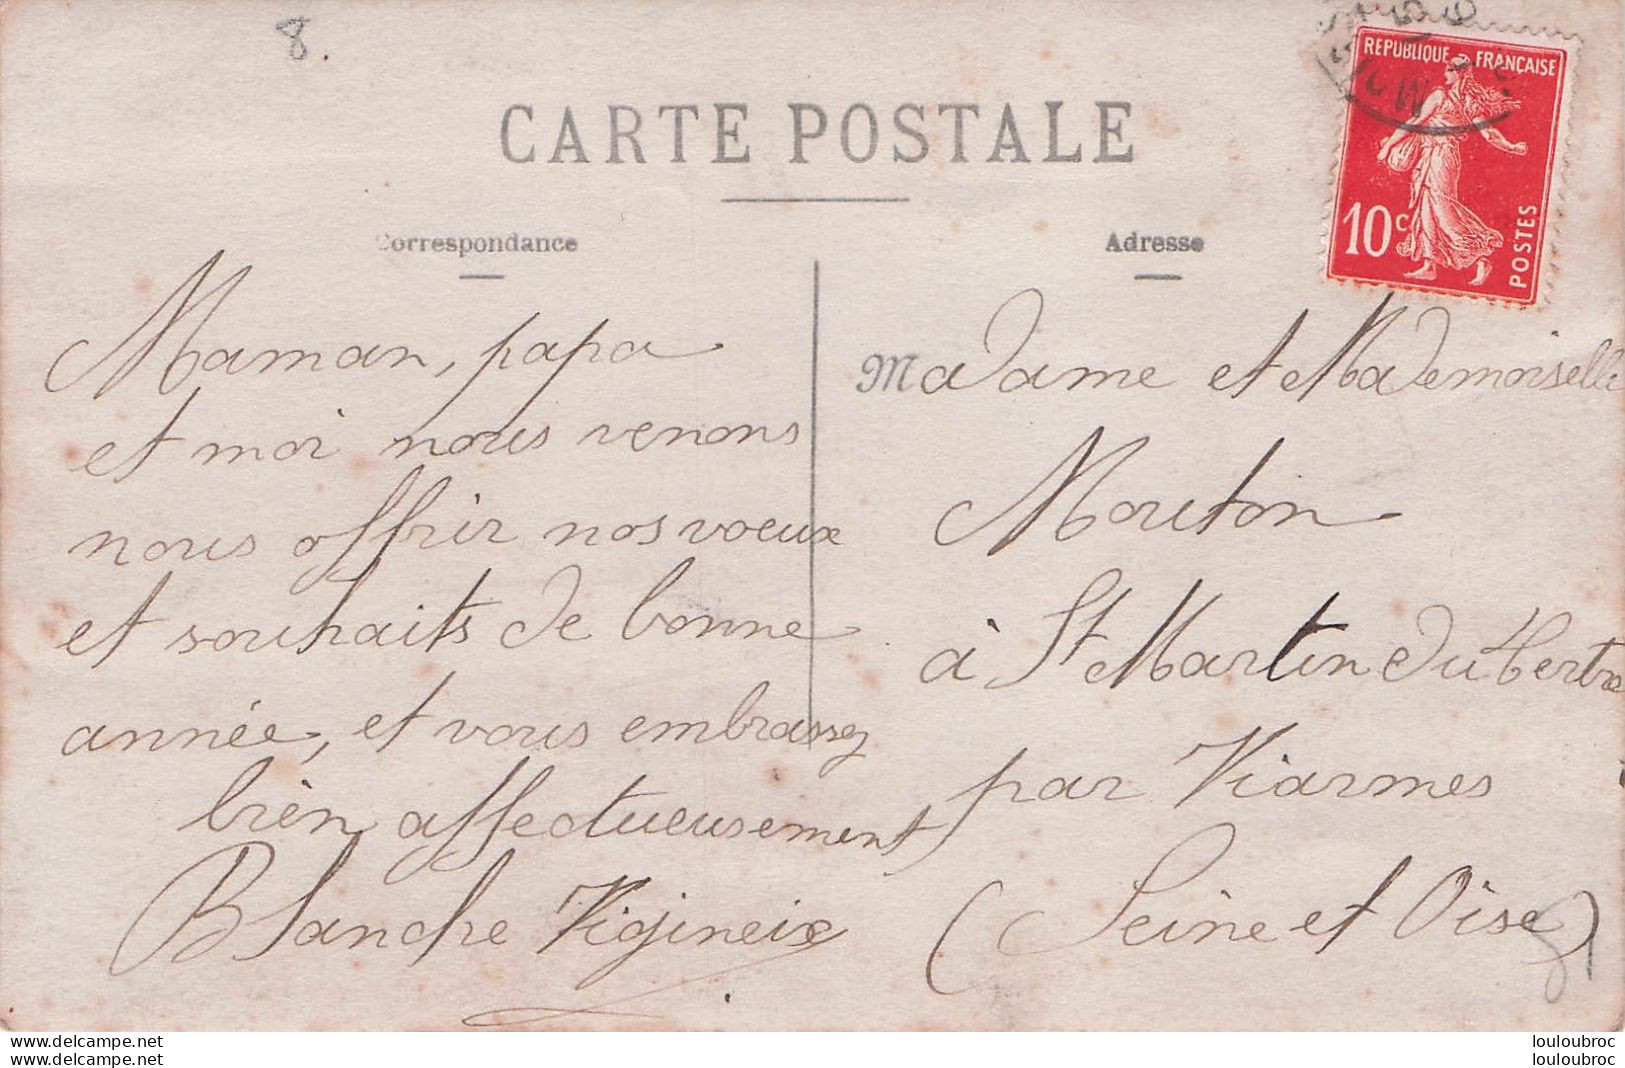 8.
CARTE POSTALE
Correspondance
Maman, papa
et moi nous venons
nous offrir nos voeux
et souhaits de bonne
année, et vous embrassez
bien affectueusement
Blanche
Adresse
Madame et Mademoiselle
Mouton
à St Martin du Tertre
par Viarmes
(Seine et Oise)
REPUBLIQUE FRANÇAISE
10c
POSTES
delcampe.net
louloubroc
louloubroc